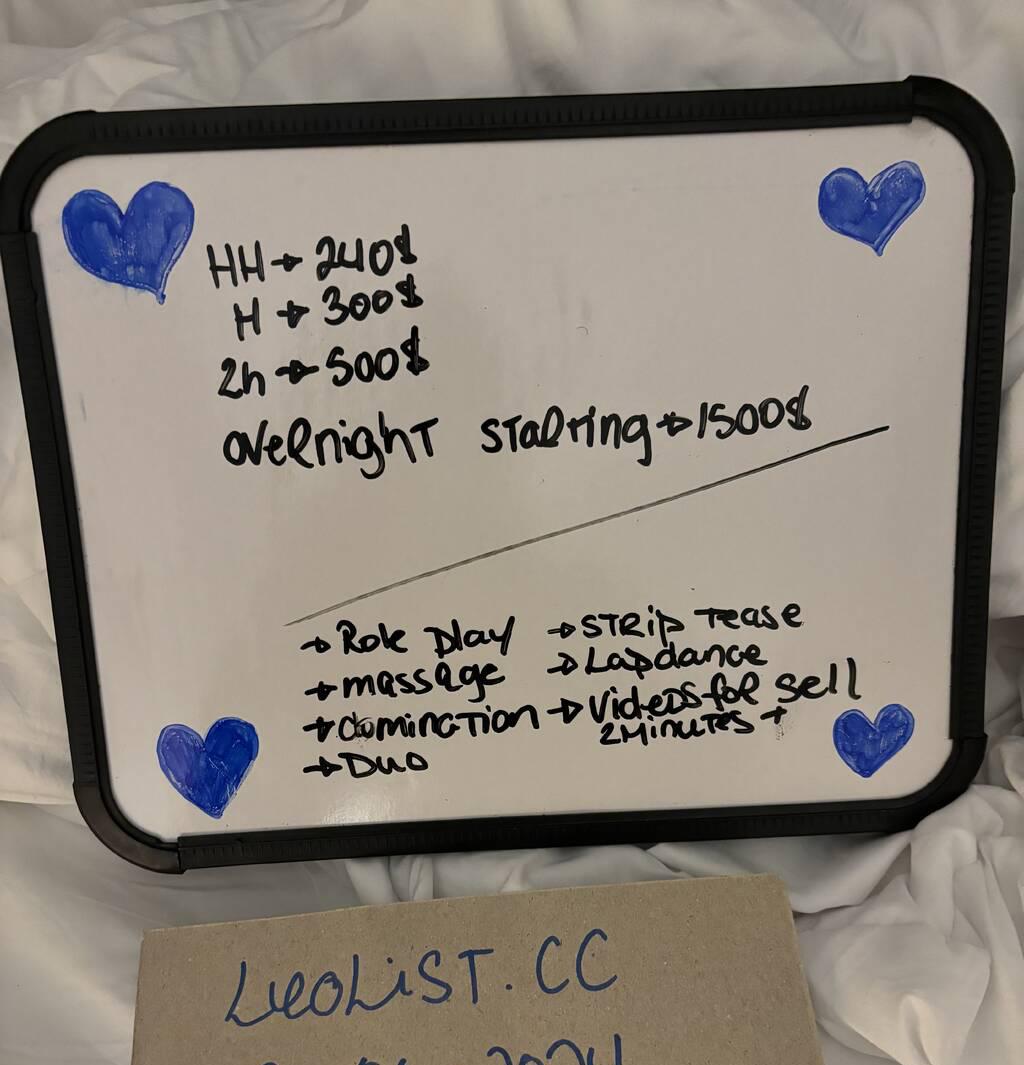 HH → 240$
H → 300$
2h → 500$
overnight starting → 1500$
→ Role play
→ massage
→ domination
→ Duo
→ STRip Tease
→ Lapdance
→ Videos for sell
2 Minutes +
LeoLiST.CC
2024